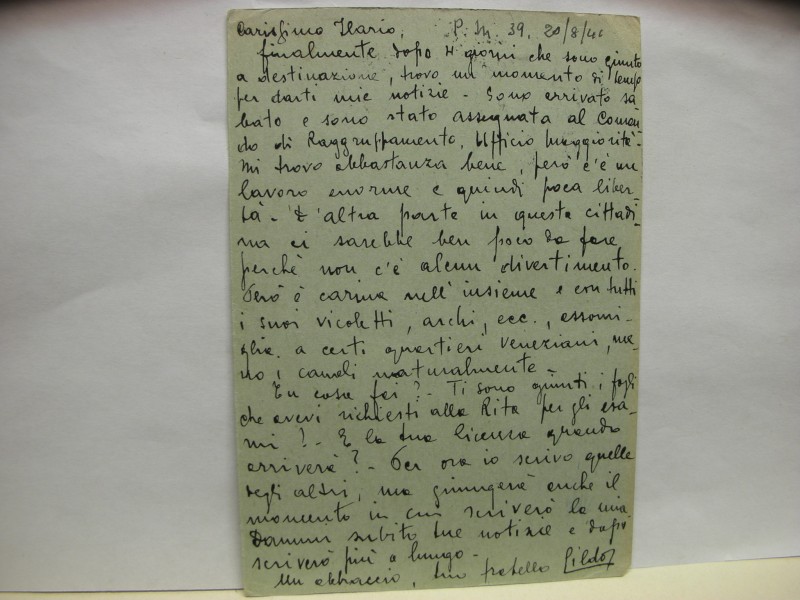 Carissimo Ilario, P.M. 39, 20/8/41
finalmente dopo 4 giorni che sono giunto
a destinazione, trovo un momento di tempo
per darti mie notizie - Sono arrivato sa
bato e sono stato assegnato al Coman
do di Raggruppamento, Ufficio Maggiorità -
Mi trovo abbastanza bene, però c'è un
lavoro enorme e quindi poca liber-
tà - D'altra parte in questa cittadi-
na ci sarebbe ben poco da fare
perchè non c'è alcun divertimento.
Però è carina nell'insieme e con tutti
i suoi vicoletti, archi, ecc., assomi-
glia a certi quartieri veneziani, me-
no i canali naturalmente -
Tu cosa fai? - Ti sono giunti i fogli
che avevi richiesti alla Rita per gli esa-
mi? - E la tua licenza quando
arriverà? - Per ora io scrivo quelle
degli altri, ma giungerà anche il
momento in cui scriverò la mia
Dammi subito tue notizie e dopo
scriverò più a lungo -
Un abbraccio, tuo fratello Gildo